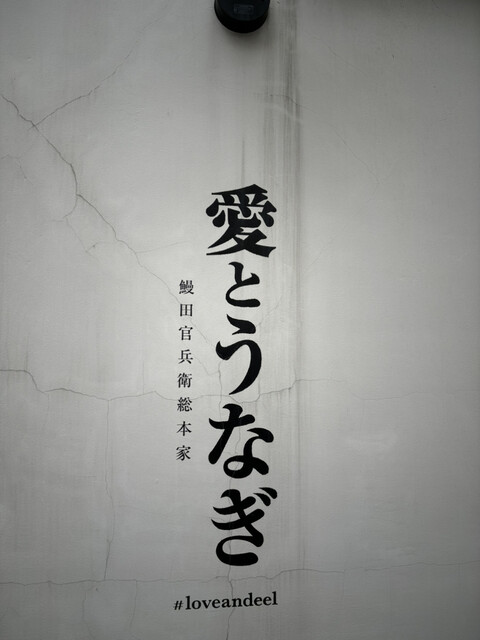 愛とうなぎ
鰻田官兵衛総本家
#loveandeel